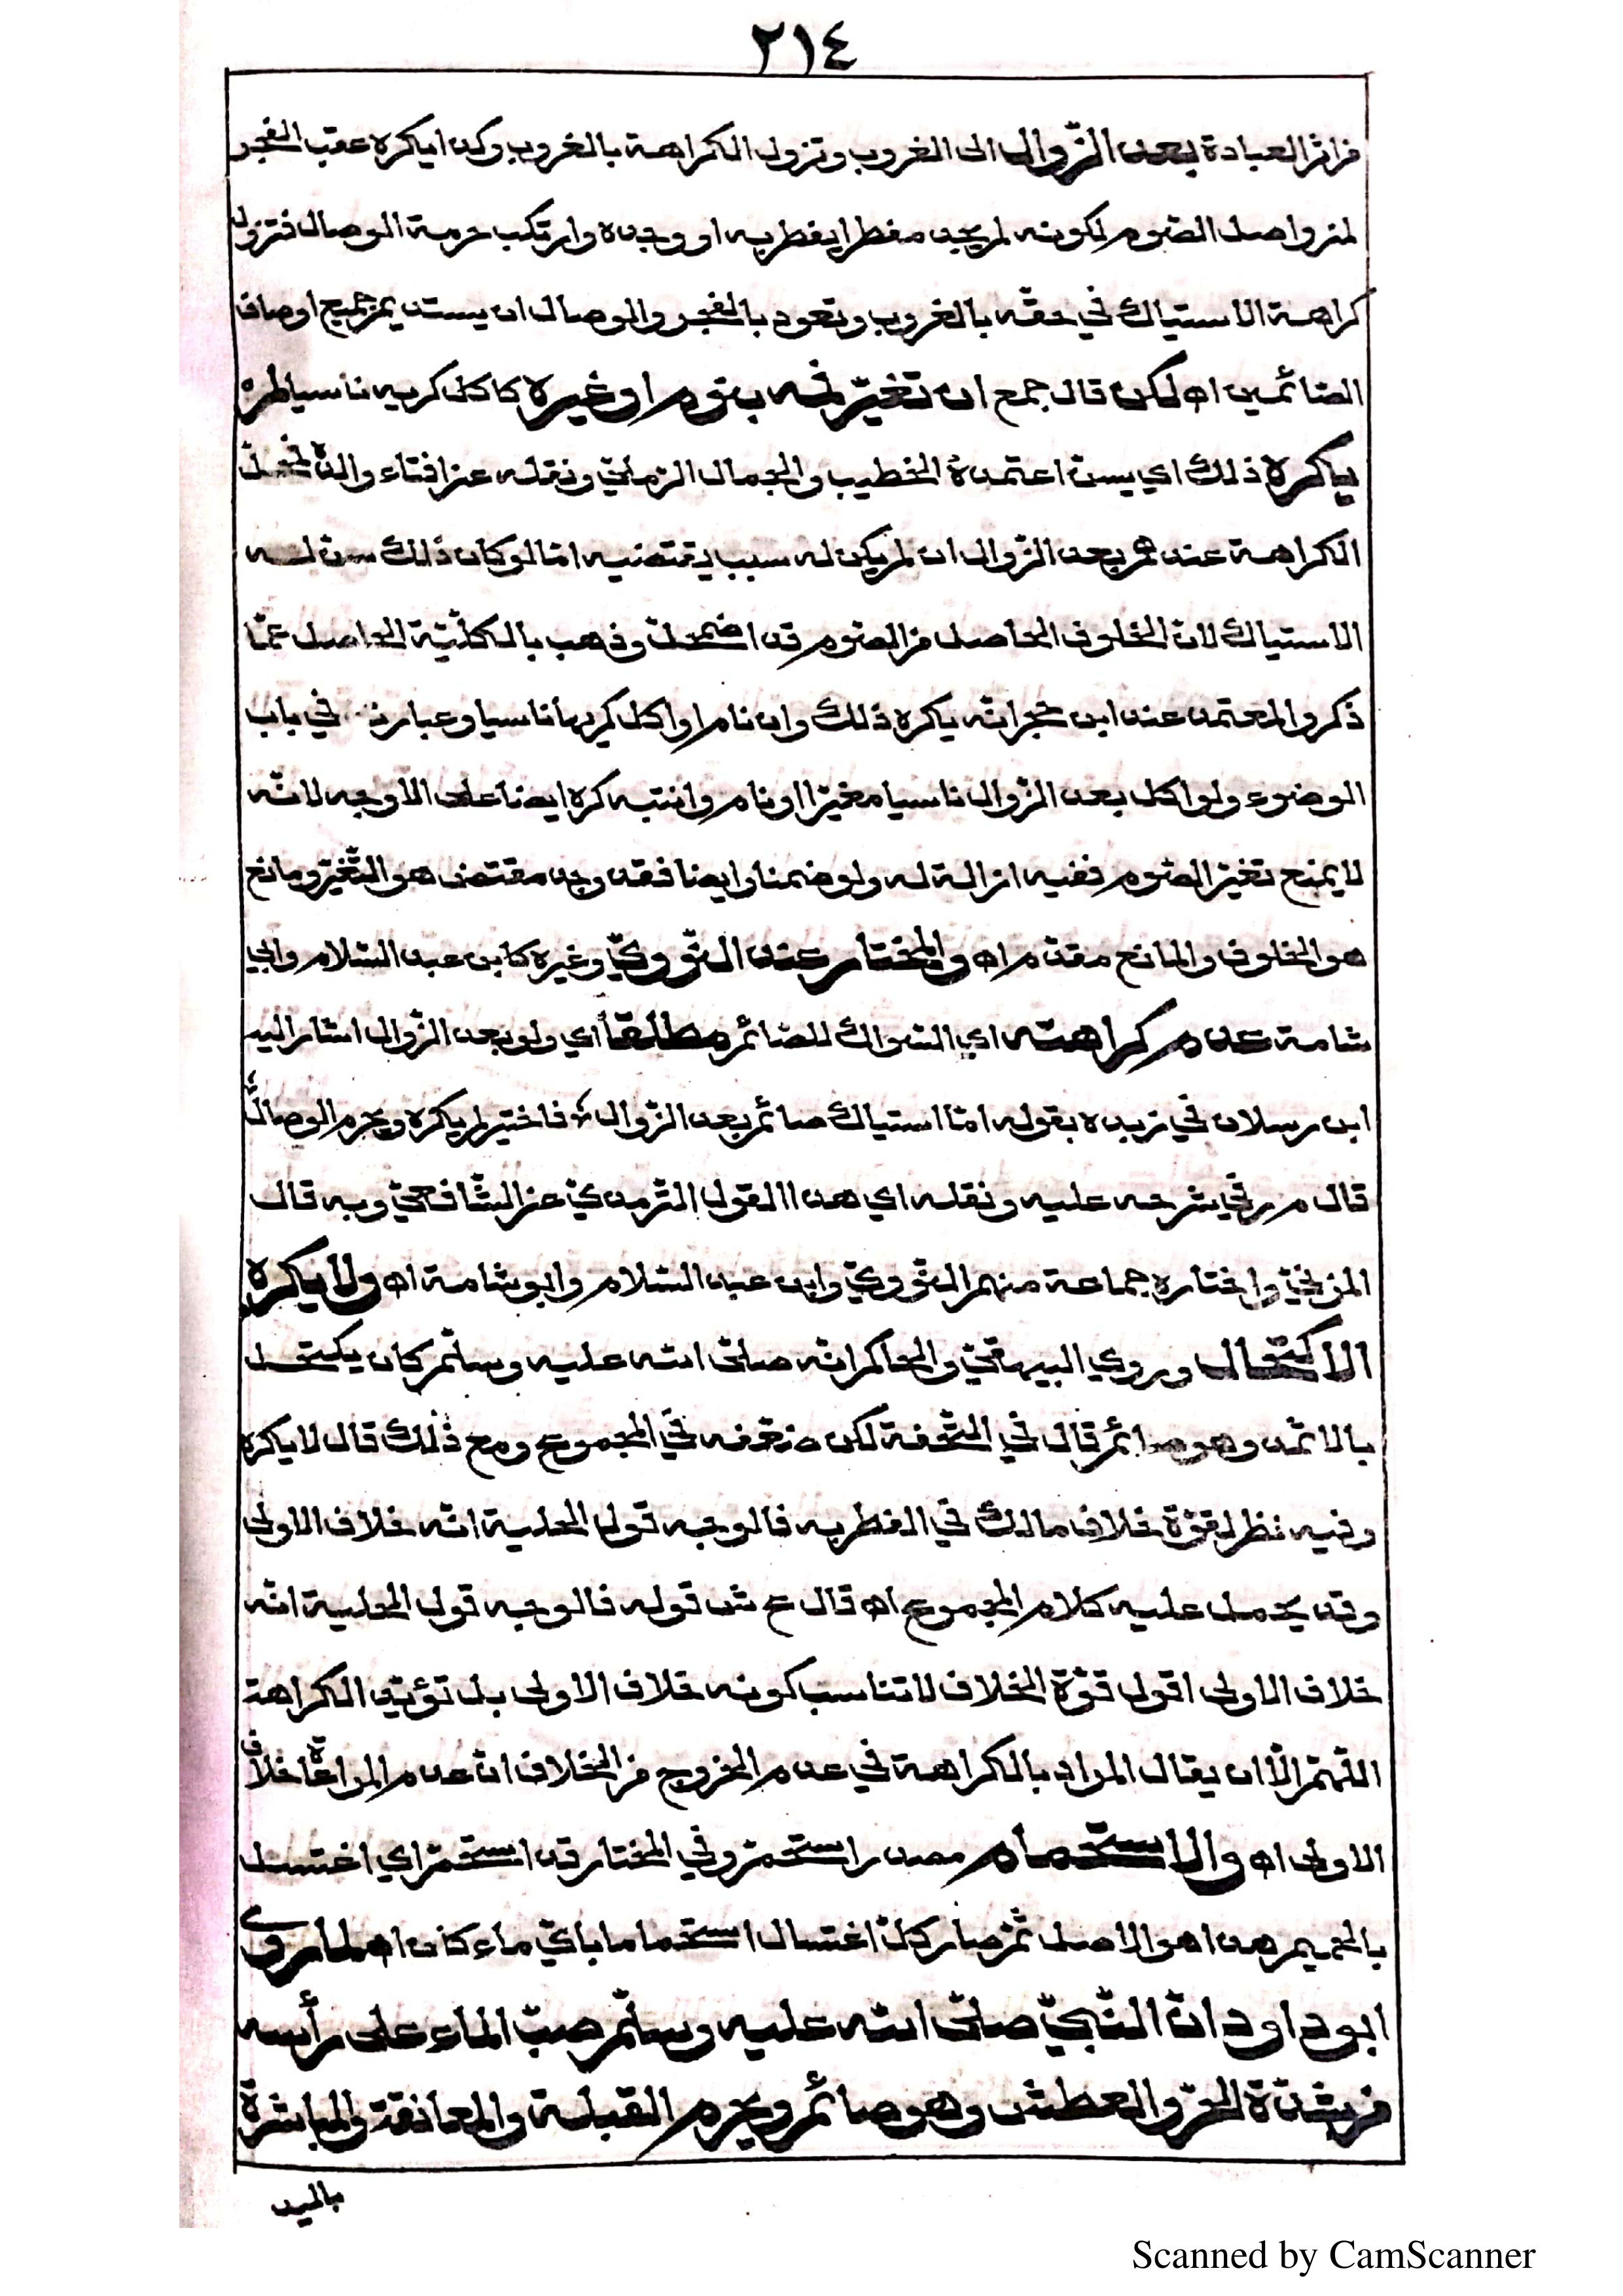 ٢١٤
من اثر العبادة بعد الزّوال الى الغروب وتزول الكراهة بالغروب وكذا يكره عقب الفجر
لمن واصل الصّوم لكونه لم يجد مفطرا يفطر به او وجده وارتكب حرمة الوصال فتزول
كراهة الاستياك في حقّه بالغروب وتعود بالفجر والوصال ان يستديم جميع اوصاف
الصّائمين اه لكن قال جمع ان تغيّر فمه بنوم او غيره كاكل كريه ناسيا لم
يكره ذلك اي يسنّ اعتمده الخطيب والجمال الرّمليّ ونقله عن افتاء والده فمحلّ
الكراهة عندهم بعد الزّوال ان لم يكن له سبب يقتضيه امّا لو كان ذلك سنّ له
الاستياك لانّ الخلوف الحاصل من الصّوم قد اضمحلّ وذهب بالكلّيّة الحاصل ممّا
ذكر والمعتمد عند ابن حجر انّه يكره ذلك وان نام او اكل كريها ناسيا وعبارته في باب
الوضوء ولو اكل بعد الزّوال ناسيا مغيّرا او نام وانتبه كره ايضا على الاوجه لانّه
لا يمنع تغيّر الصّوم ففيه ازالة له ولو ضمنا وايضا فقد وجد مقتض هو التّغيّر ومانع
هو الخلوف والمانع مقدّم اه والمختار عند النّوويّ وغيره كابن عبد السّلام وابي
شامة عدم كراهته اي السّواك للصّائم مطلقا اي ولو بعد الزّوال اشار اليه
ابن رسلان في زبده بقوله امّا استياك صائم بعد الزّوال * فاختير لم يكره ويحرم الوصال
قال م ر في شرحه عليه ونقله اي هذا القول التّرمذيّ عن الشّافعيّ وبه قال
المزنيّ واختاره جماعة منهم النّوويّ وابن عبد السّلام وابو شامة اه ولا يكره
الاكتحال وروي البيهقيّ والحاكم انّه صلّى الله عليه وسلّم كان يكتحل
بالاثمد وهو صائم قال في التّحفة لكن ضعّفه في المجموع ومع ذلك قال لا يكره
وفيه نظر لقوّة خلاف مالك في الفطر به فالوجه قول الحلية انّه خلاف الاولى
وقد يحمل عليه كلام المجموع اه قال ع ش قوله فالوجه قول الحلية انّه
خلاف الاولى اقول قوّة الخلاف لا تناسب كونه خلاف الاولى بل تؤيّد الكراهة
اللّهمّ الّا ان يقال المراد بالكراهة في عدم الخروج من الخلاف انّ عدم المراعاة خلاف
الاولى اه والاستحمام مصدر استحمّ وفي المختار قد استحمّ اي اغتسل
بالحميم هذا هو الاصل ثمّ صار كلّ اغتسال استحماما بايّ ماء كان اه لما روى
ابو داود انّ النّبيّ صلّى الله عليه وسلّم صبّ الماء على رأسه
من شدّة الحرّ والعطش وهو صائم ويحرم القبلة والمعانقة والمباشرة
باليد
Scanned by CamScanner